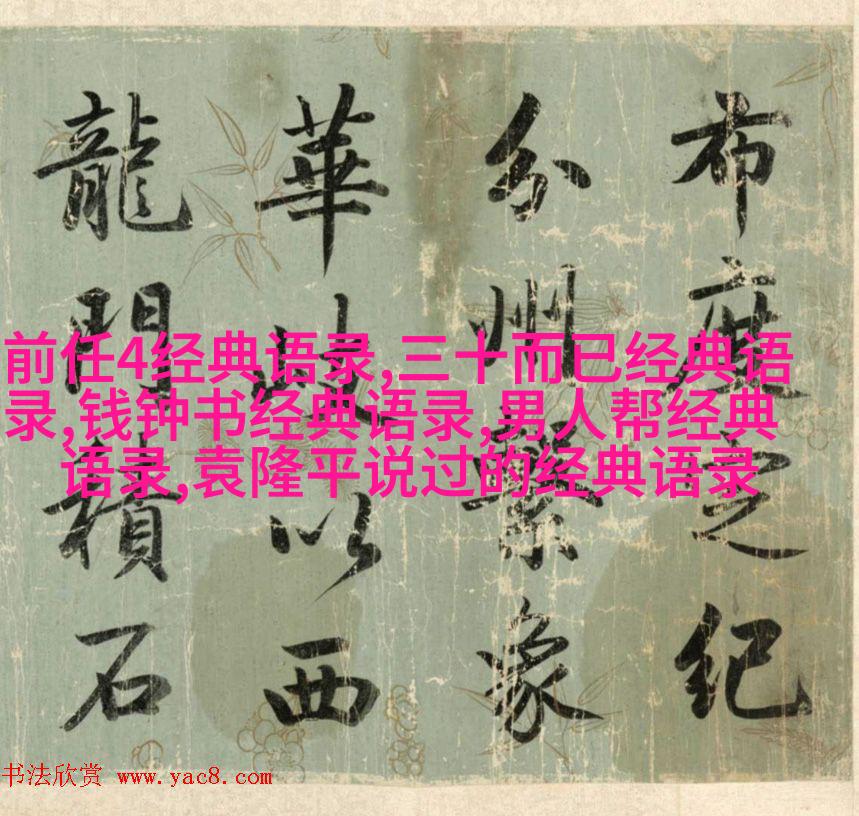 布度定紀
分州繫象
華以西
龍門積石
前任4经典语录,三十而已经典语
录,钱钟书经典语录,男人帮经典
语录,袁隆平说过的经典语录
书法欣赏 www.yac8.com